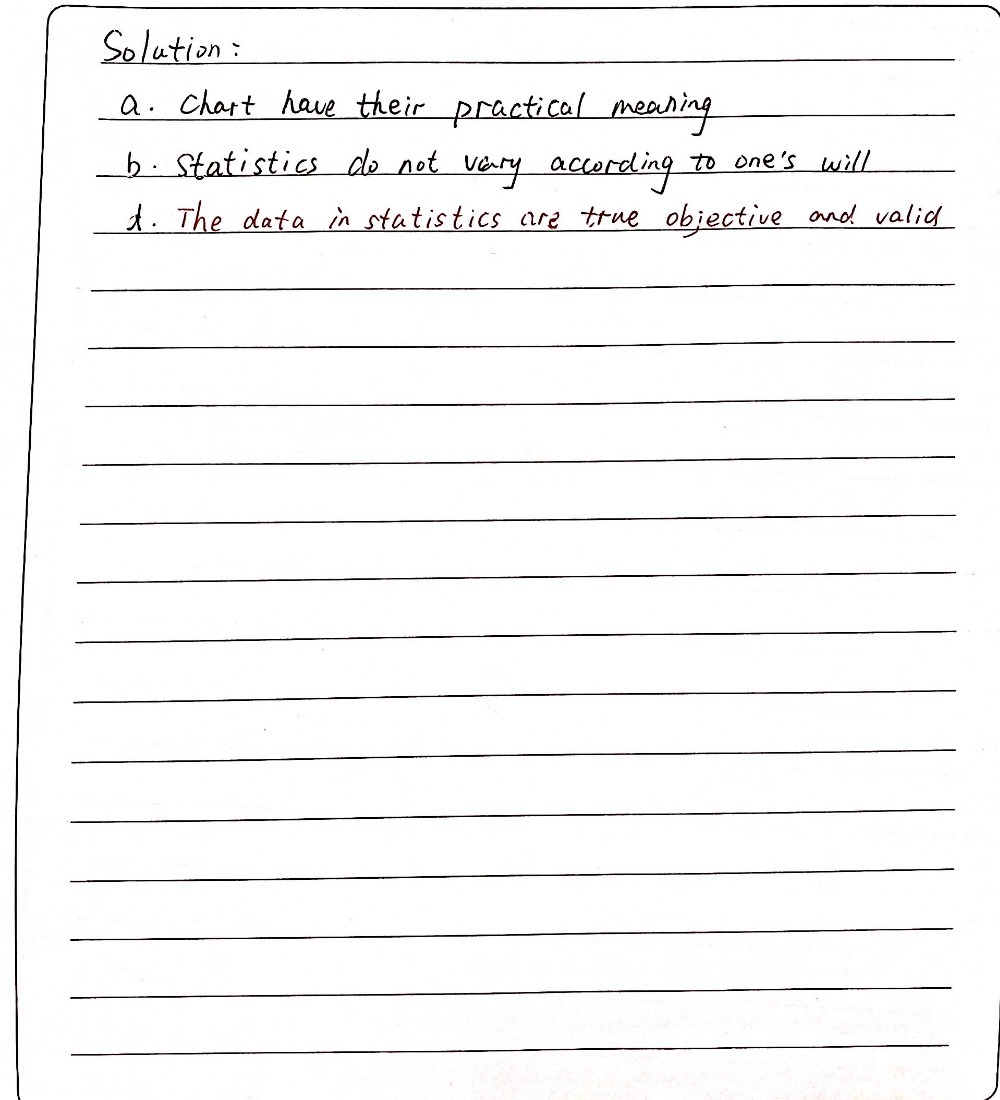 Solution:
a. Chart have their practical meaning
b. Statistics do not vary according to one's will
d. The data in statistics are true objective and valid